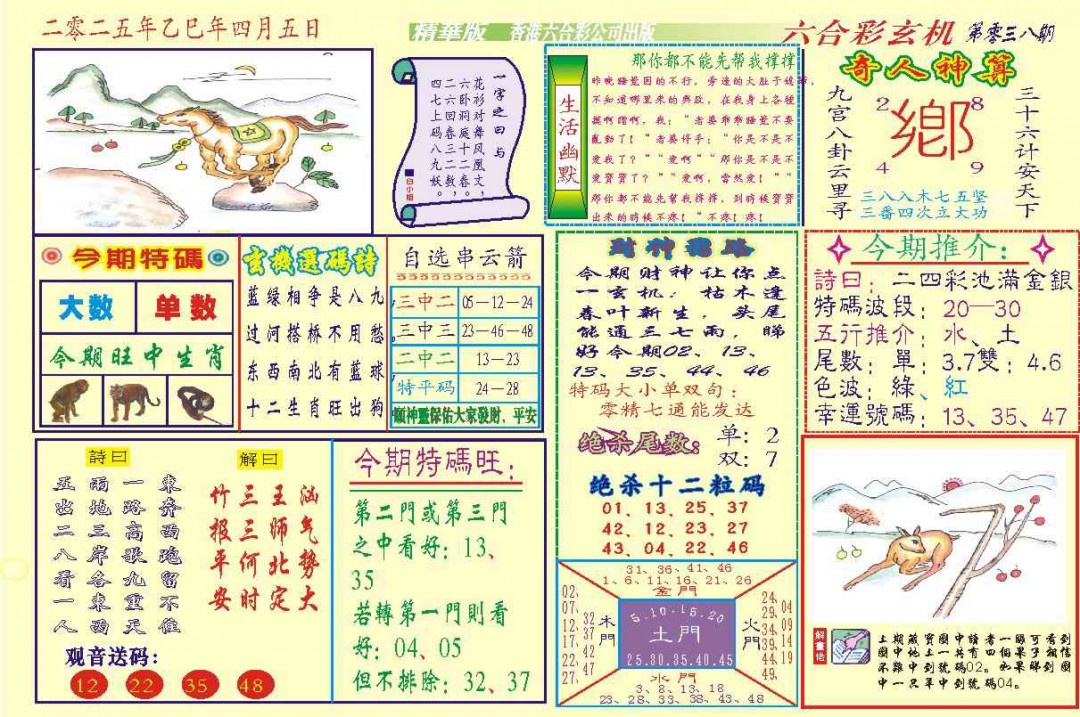 二零二五年乙巳年四月五日
精華版 香港六合彩公司出版
六合彩玄机 第零三八期
一字之曰与
花衫对舞风凰文，
六卧祠庭十二春。
二六回春三二数，
四七上码八九妖。
白小姐
生活幽默
那你都不能先帮我撑撑
奇人神算
九宫八卦云里寻
2 8
鄉
4 9
三十六计安天下
三八入木七五坚
三番四次立大功
今期特碼
大数 单数
今期旺中生肖
玄機選碼詩
蓝绿相争是八九
过河搭桥不用愁
东西南北有蓝球
十二生肖旺出狗
自选串云箭
三中二 05—12—24
三中三 23—46—48
二中二 13—23
特平码 24—28
願神靈保佑大家發財，平安
今期财神让你点
一玄机：枯木逢
春叶新生，头尾
能通三七雨，睇
好今期02、13、
13、35、44、46
特码大小单双句：
零精七通能发达
绝杀尾数：
单：2
双：7
绝杀十二粒码
01、13、25、37
42、12、23、27
43、04、22、46
今期推介：
詩曰：二四彩池滿金銀
特碼波段：20—30
五行推介：水、土
尾數：單：3.7雙：4.6
色波：綠、紅
幸運號碼：13、35、47
詩曰
東奔西跑留不住
一路高歌九重天
雨地三岸各東西
五出二八看一人
解曰
汹气势大
王师北定
三三何时
竹报平安
观音送码：
12 22 35 48
今期特碼旺：
第二門或第三門
之中看好：13、
35
若轉第一門則看
好：04、05
但不排除：32、37
31、36、41、46
1、6、11、16、21、26
金門
02、07、12、17、22、27、
32、37、42、47
木門
5.10.15.20
土門
25.30.35.40.45
火門
24、29、34、39、44、49、
04、09、14、19
水門
3、8、13、18
23、28、33、38、43、48
解畫偣
上期藏寶圖中讀者一睇可看到
圖中地上一共有四個果子相信
不難中到號碼02。如果睇到圖
中一只羊中到號碼04。